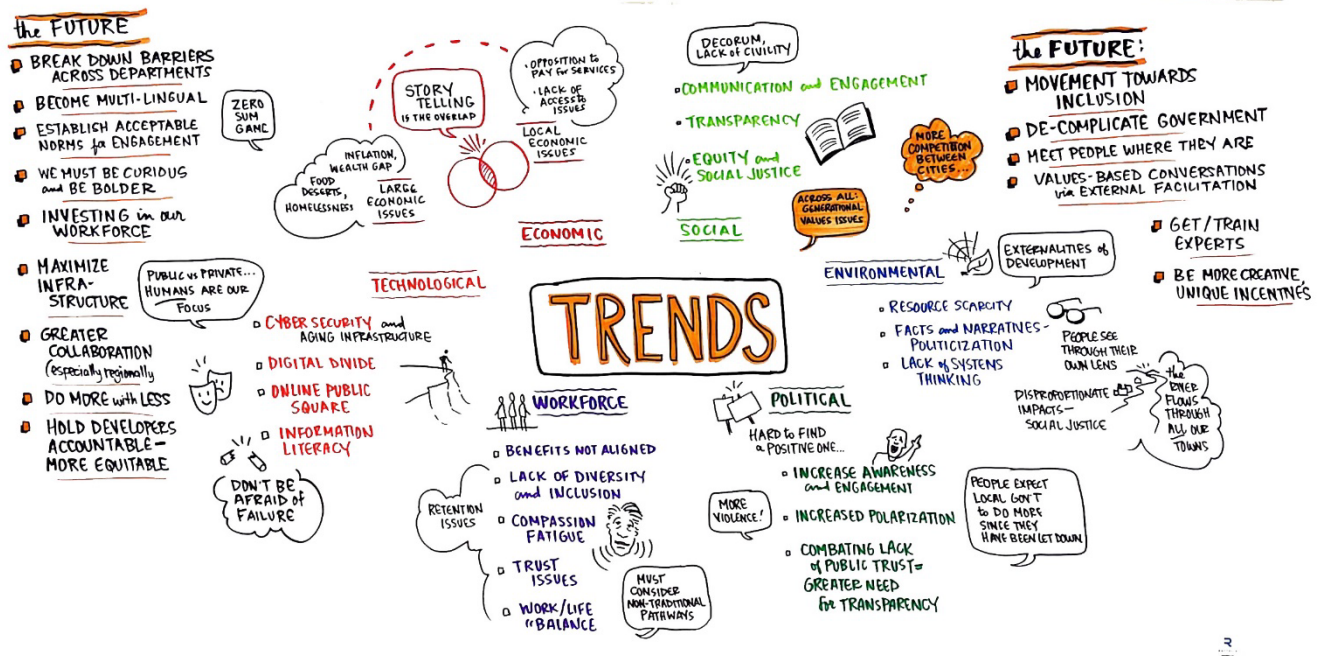 the FUTURE
BREAK DOWN BARRIERS
ACROSS DEPARTMENTS
BECOME MULTI-LINGUAL
ESTABLISH ACCEPTABLE
NORMS for ENGAGEMENT
WE MUST BE CURIOUS
and BE BOLDER
INVESTING in our
WORKFORCE
MAXIMIZE
INFRA-
STRUCTURE
GREATER
COLLABORATION
(especially regionally
DO MORE with LESS
HOLD DEVELOPERS
ACCOUNTABLE-
MORE EQUITABLE
ZERO
SUM
GAME
PUBLIC vs PRIVATE...
HUMANS ARE OUR
FOCUS
INFLATION,
WEALTH GAP
FOOD
DESERTS,
HOMELESSNESS
LARGE
ECONOMIC
ISSUES
STORY
TELLING
IS THE OVERLAP
• OPPOSITION to
PAY for SERVICES
• LACK OF
ACCESS to
ISSUES
LOCAL
ECONOMIC
ISSUES
ECONOMIC
TECHNOLOGICAL
CYBER SECURITY and
AGING INFRASTRUCTURE
DIGITAL DIVIDE
ONLINE PUBLIC
SQUARE
INFORMATION
LITERACY
DON'T BE
AFRAID of
FAILURE
DECORUM,
LACK OF CIVILITY
• COMMUNICATION and ENGAGEMENT
• TRANSPARENCY
• EQUITY and
SOCIAL JUSTICE
SOCIAL
ACROSS ALL:
GENERATIONAL
VALUES ISSUES
MORE
COMPETITION
BETWEEN
CITIES...
TRENDS
WORKFORCE
BENEFITS NOT ALIGNED
LACK OF DIVERSITY
and INCLUSION
COMPASSION
FATIGUE
TRUST
ISSUES
WORK/LIFE
"BALANCE
RETENTION
ISSUES
MUST
CONSIDER
NON-TRADITIONAL
PATHWAYS
POLITICAL
HARD to FIND
a POSITIVE ONE...
INCREASE AWARENESS
and ENGAGEMENT
INCREASED POLARIZATION
COMBATING LACK
of PUBLIC TRUST=
GREATER NEED
for TRANSPARENCY
MORE
VIOLENCE!
PEOPLE EXPECT
LOCAL GOV'T
to DO MORE
SINCE THEY
HAVE BEEN LET DOWN
ENVIRONMENTAL
EXTERNALITIES of
DEVELOPMENT
RESOURCE SCARCITY
FACTS and NARRATIVES-
POLITICIZATION
LACK of SYSTEMS
THINKING
PEOPLE SEE
THROUGH THEIR
OWN LENS
DISPROPORTIONATE
IMPACTS-
SOCIAL JUSTICE
the
RIVER
FLOWS
THROUGH
ALL OUR
TOWNS
the FUTURE:
MOVEMENT TOWARDS
INCLUSION
DE-COMPLICATE GOVERNMENT
MEET PEOPLE WHERE THEY ARE
VALUES-BASED CONVERSATIONS
via EXTERNAL FACILITATION
GET/TRAIN
EXPERTS
BE MORE CREATIVE,
UNIQUE INCENTIVES